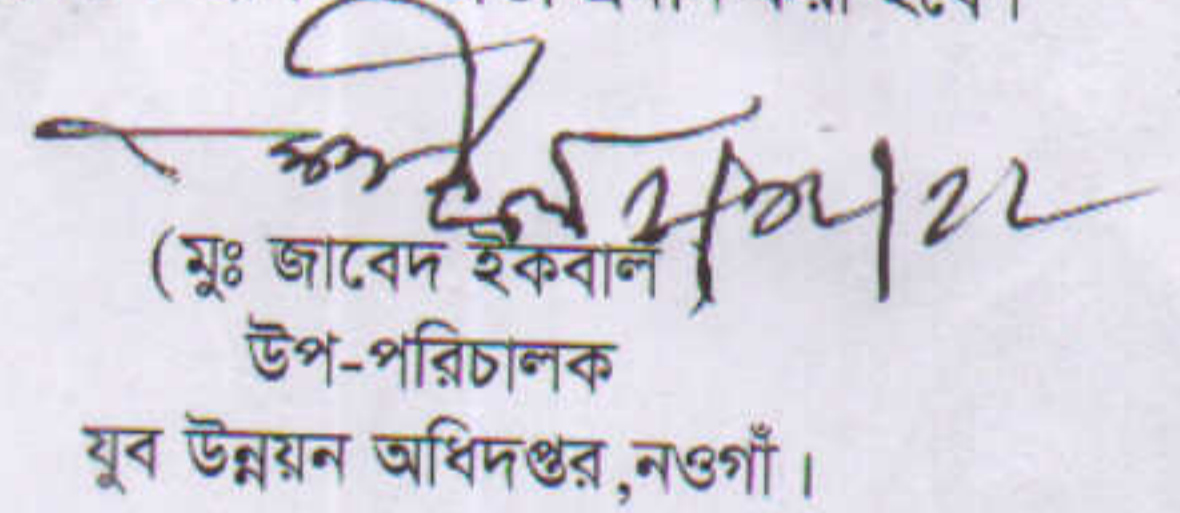 করা হবে।
(মুঃ জাবেদ ইকবাল)
উপ-পরিচালক
যুব উন্নয়ন অধিদপ্তর,নওগাঁ।